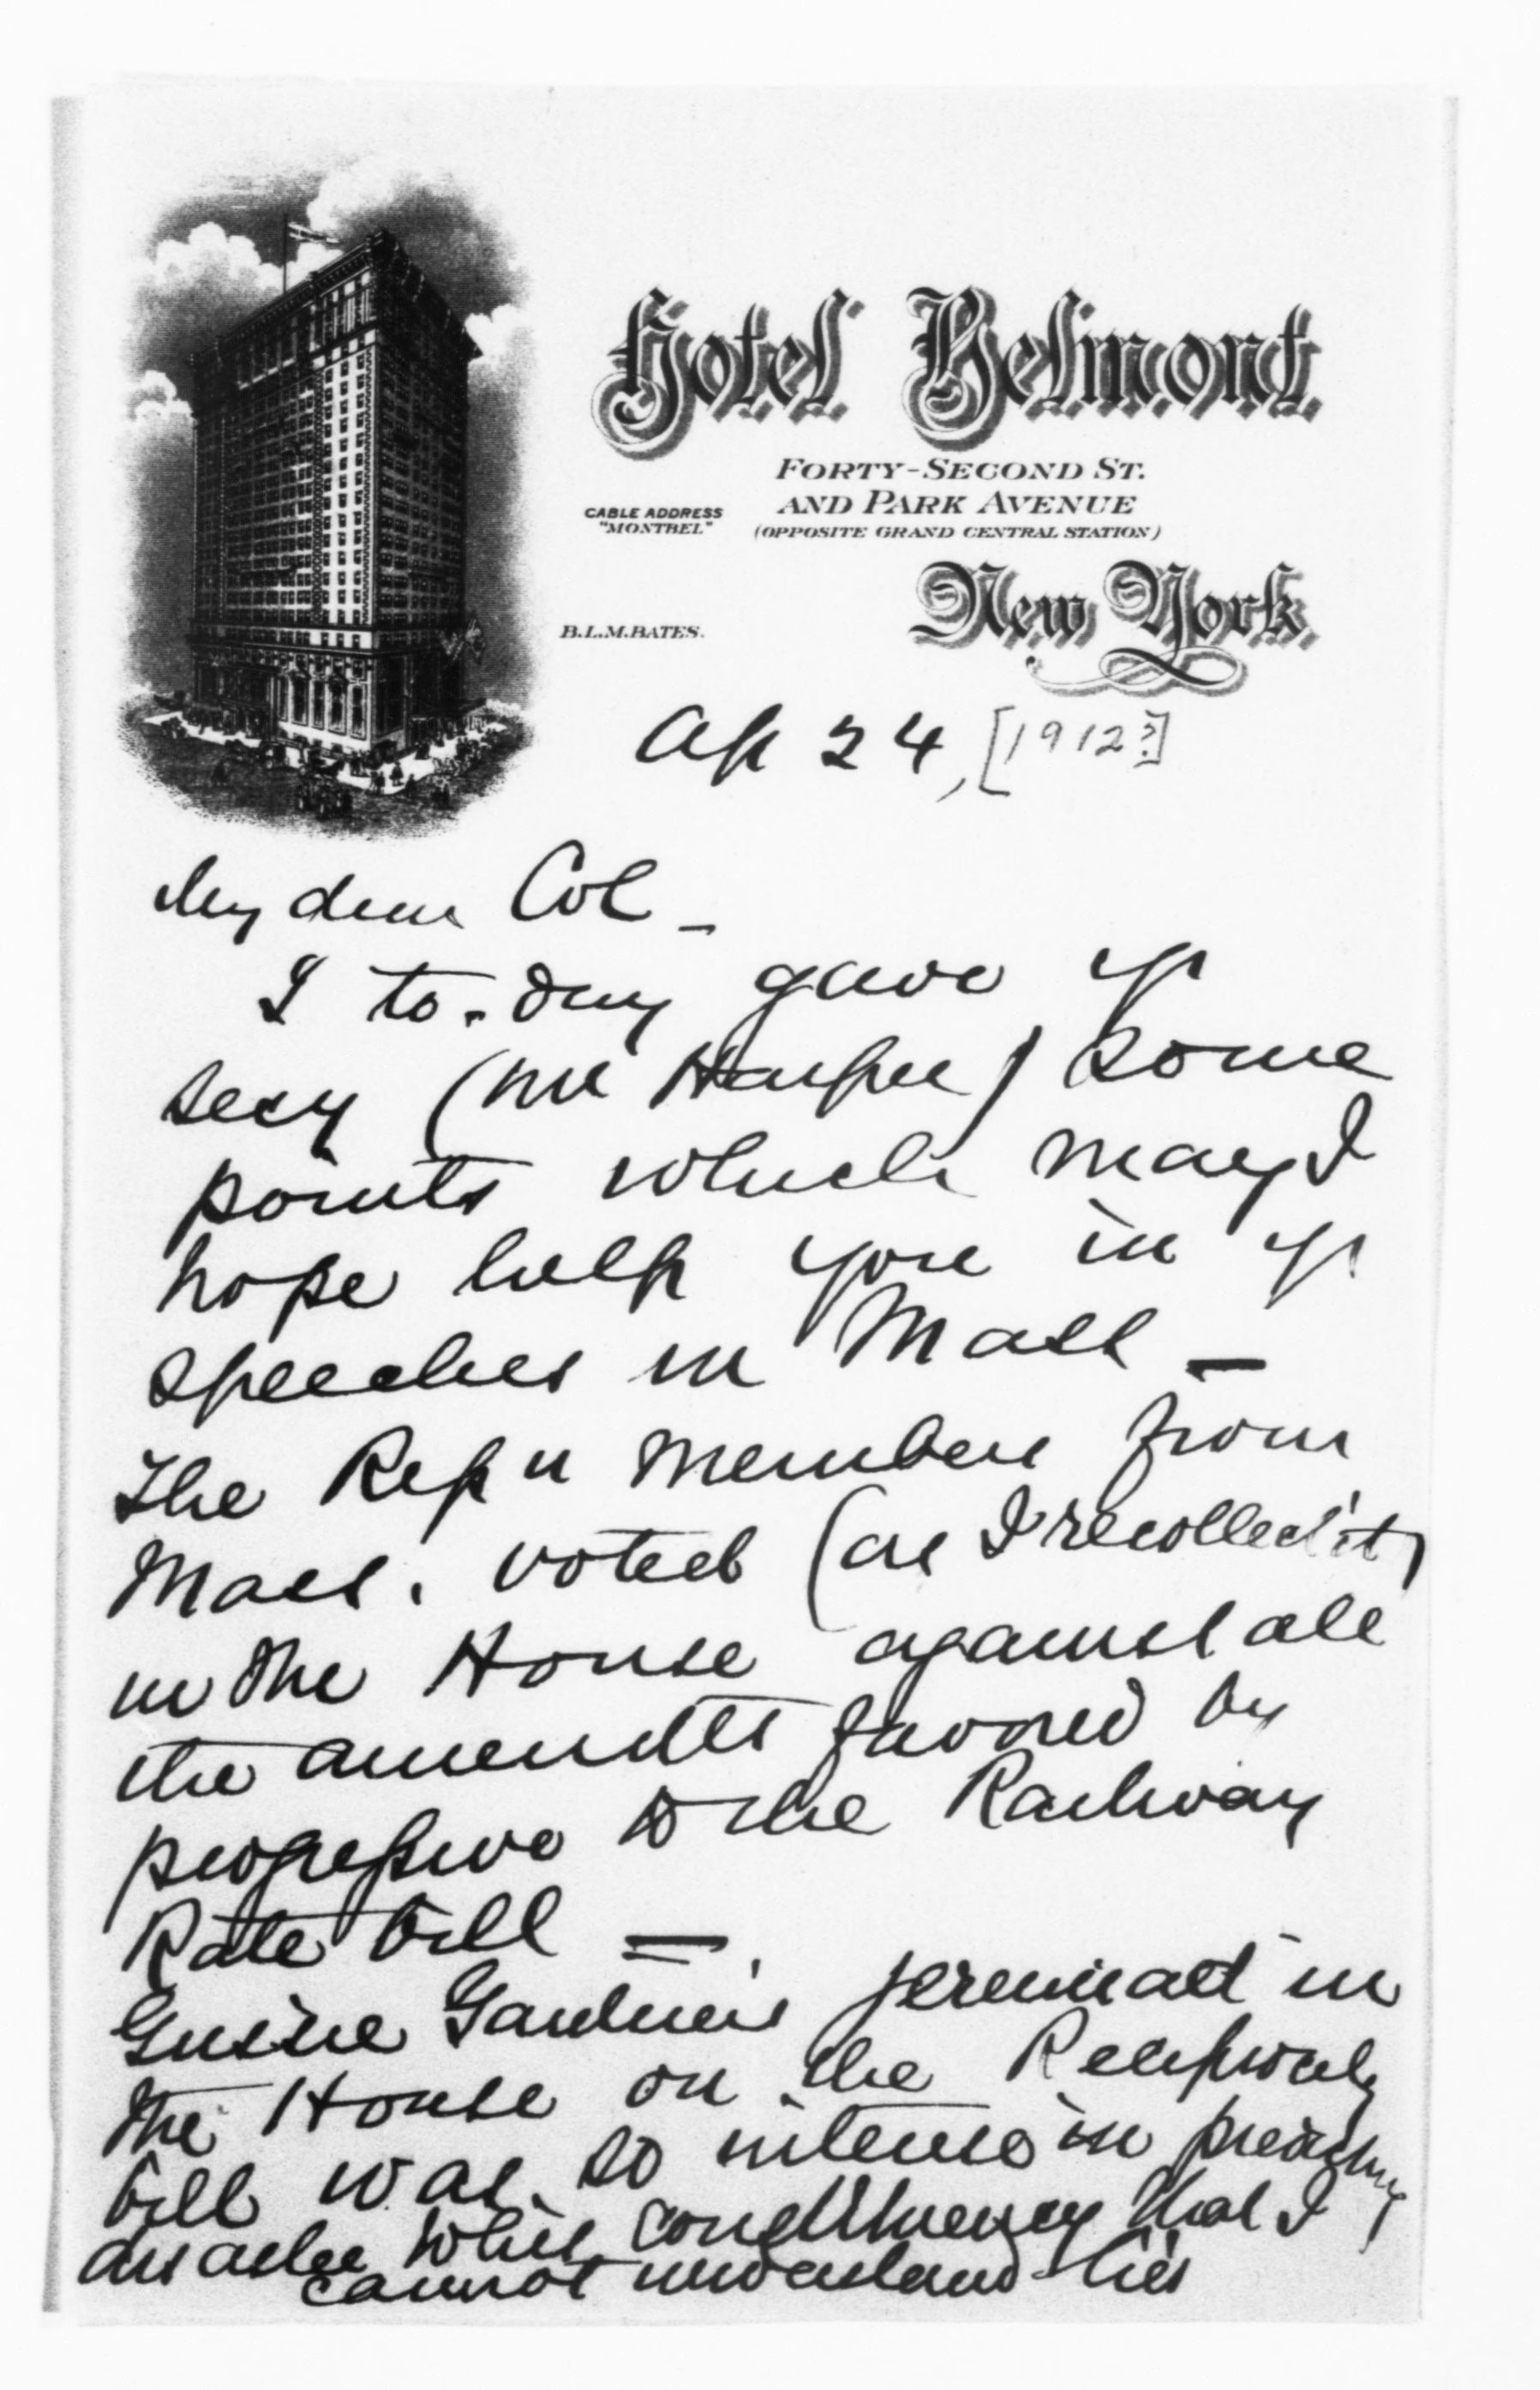 Hotel Belmont
FORTY-SECOND ST.
AND PARK AVENUE
(OPPOSITE GRAND CENTRAL STATION)
CABLE ADDRESS
"MONTBEL"
New York
B.L.M.BATES.
Ap 24, [1912?]
My dear Col -
I to-day gave yr
secy (Mr Harper) some
points which may I
hope help you in yr
speeches in Mass —
The Repn members from
Mass. voted (as I recollect it)
in the House against all
the amendts favored by
progressive to the Railway
Rate bill —
Gussie Gardner's jeremiad in
the House on the Reciprocity
bill was so intense in
constituency that I
cannot understand his